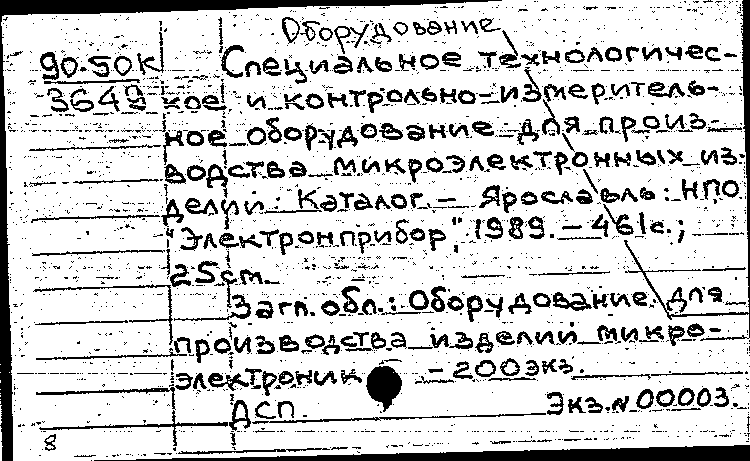 Оборудование
90-50К Специальное технологичес-
3649 кое и контрольно-измеритель-
ное оборудование для произ-
водства микроэлектронных из-
делий: Каталог. - Ярославль: НПО
"Электронприбор", 1989. - 461с.;
25см.
Загл. обл.: Оборудование для
производства изделий микро-
электроник - 200экз.
ДСП. Экз.N00003.
8